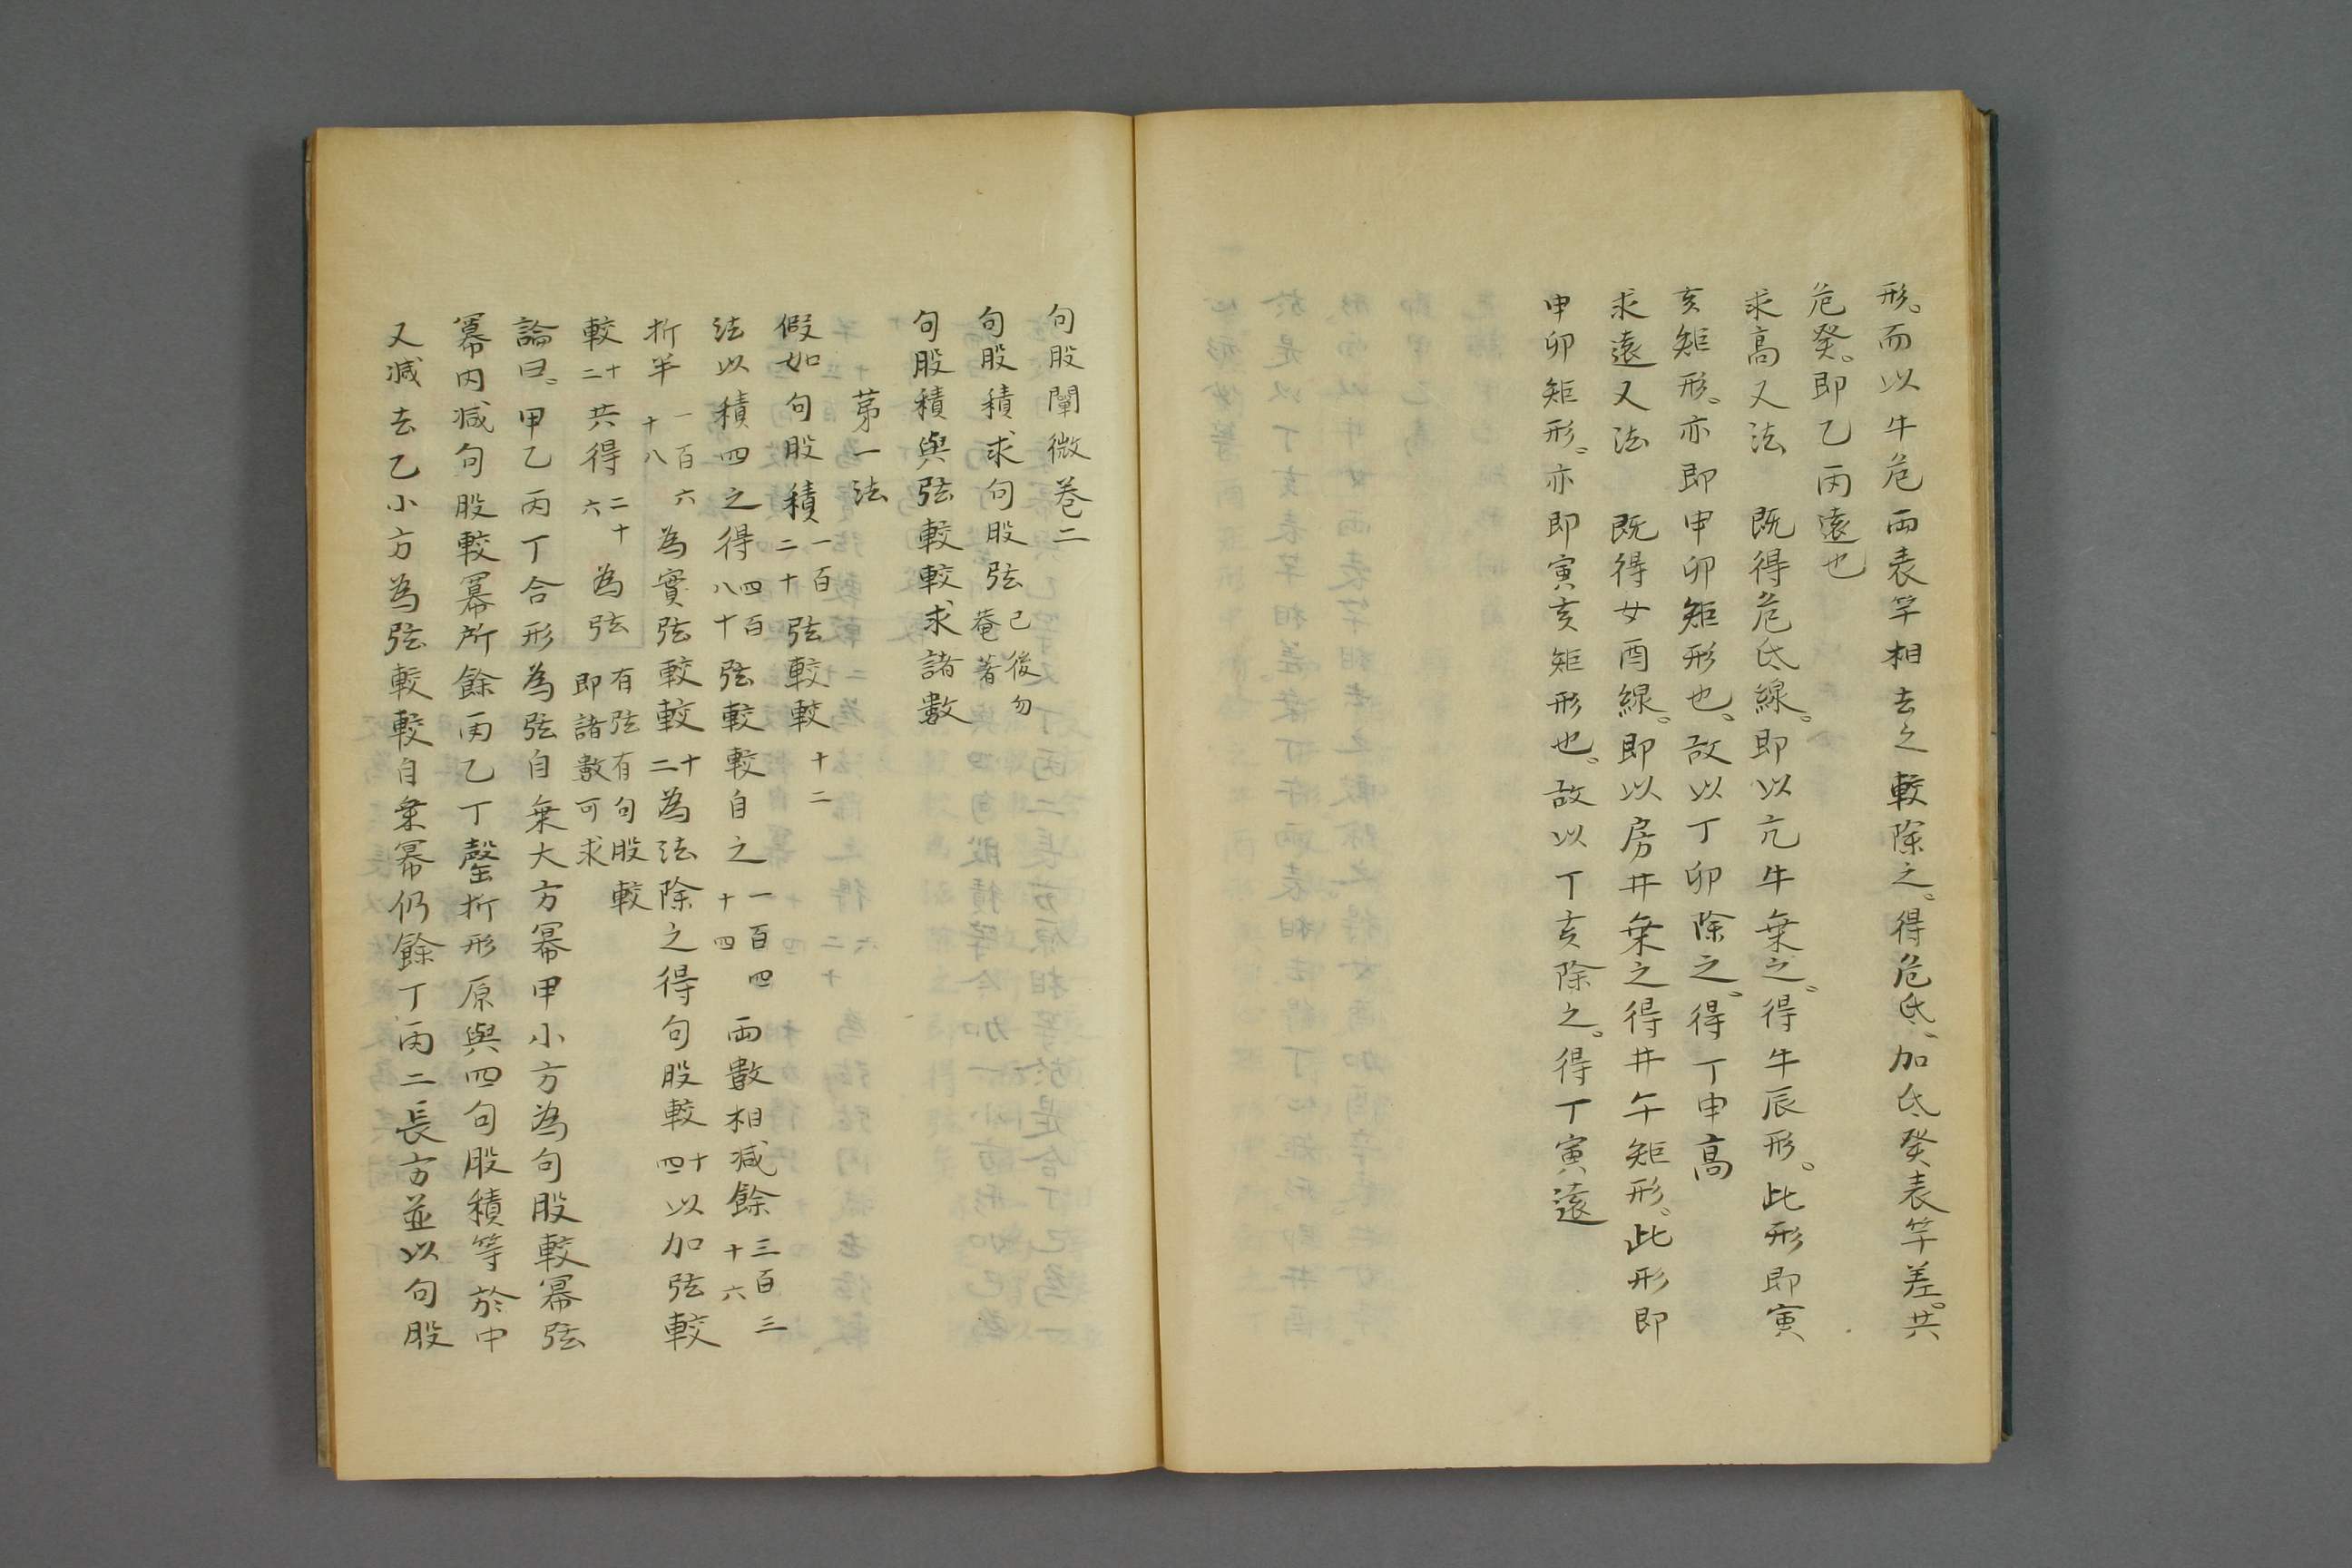 形。而以牛危兩表竿相去之較除之。得危氐、加氐癸表竿差。共
危癸。即乙丙遠也
求高又法　既得危氐線。即以亢牛乗之。得牛辰形。此形即寅
亥矩形。亦即申卯矩形也。故以丁卯除之。得丁申高
求遠又法　既得女酉線。即以房井乗之得井午矩形。此形即
申卯矩形。亦即寅亥矩形也。故以丁亥除之。得丁寅遠
句股闡微巻二
句股積求句股弦 己後勿菴著
句股積與弦較較求諸數
苐一法
假如句股積 一百二十 弦較較 十二
法以積四之得 四百八十 弦較較自之 一百四十四 兩數相減餘 三百三十六
折半 一百六十八 為實弦較較 十二 為法除之得句股較 十四 以加弦較
較 十二 共得 二十六 為弦 有弦有句股較即諸數可求
論曰。甲乙丙丁合形為弦自乗大方冪甲小方為句股較冪弦
冪内減句股較冪所餘丙乙丁罄折形原與四句股積等於中
又減去乙小方為弦較較自乗冪仍餘丁丙二長方並以句股